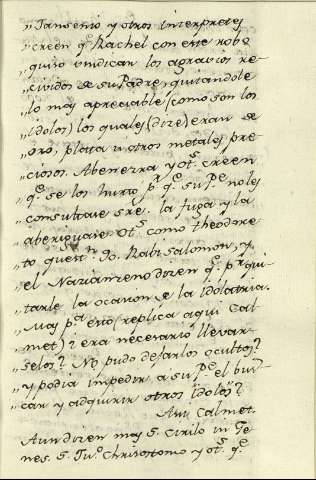 "Jansenio y otros interpretes
"creen q.e Rachel con este robo
"quiso vindicar los agravios re
"cividos de su Padre, quitandole
"lo mas apreciable (como son los
"idolos) los quales (dize) eran de
"oro, platta u otros metales pre
"ciosos. Abenezra y ot.s creen
"q.e se los hurtó p.r q.e su P.e no les
"consultase sre. la fuga y la
"aberiguase. Ot.s como theodore
"to quest.n 90. Rabi Salomon, y
"el Nazianzeno dizen q.e p.r qui
"tarle la ocasion de la idolatria.
"Mas p.a esto (replica aqui Cal
"met) era necesario llevar
"selos? No pudo dejarlos ocultos?
"y podia impedir a su P.e el bus
"car y adquirir otros idolos"?
Calmet.
Aun dizen mas S. Cirilo in Ge
nes. S. Ju.o Chrisostomo y ot.s q.e